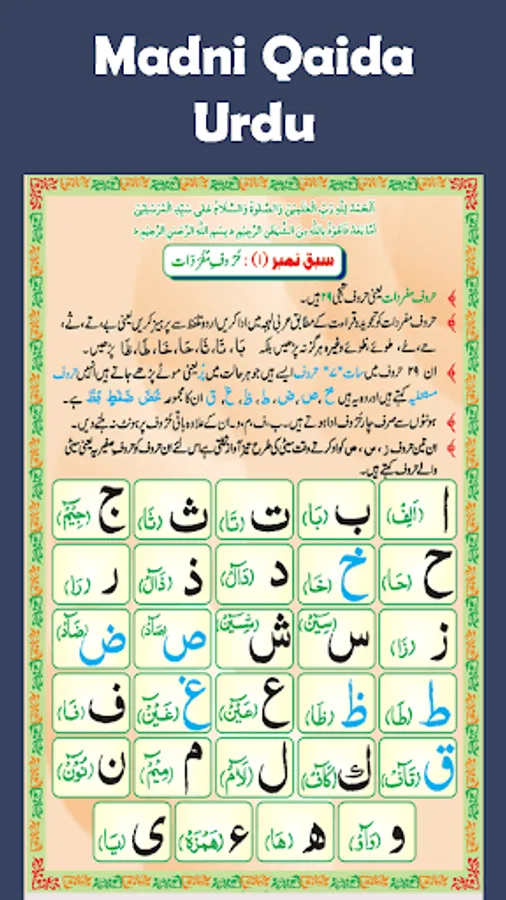 Madni Qaida
Urdu
اَلْحَمْدُ لِلّٰهِ رَبِّ الْعٰلَمِيْنَ وَالصَّلٰوةُ وَالسَّلَامُ عَلٰى سَيِّدِ الْمُرْسَلِيْنَ
اَمَّا بَعْدُ فَاَعُوْذُ بِاللّٰهِ مِنَ الشَّيْطٰنِ الرَّجِيْمِ ؕ بِسْمِ اللّٰهِ الرَّحْمٰنِ الرَّحِيْمِ ؕ
سبق نمبر (۱) : حُرُوفِ مُفْرَدَات
حروفِ مفردات یعنی حروفِ تہجی ۲۹ ہیں۔
حروفِ مفردات کو تجوید و قراءت کے مطابق عربی لہجہ میں ادا کریں اردو تلفظ سے پرہیز کریں یعنی بے، تے، ثے،
حے، خے، طوئے، ظوئے وغیرہ ہرگز نہ پڑھیں بلکہ بَا، تَا، ثَا، حَا، خَا، طَا، ظَا پڑھیں۔
ان ۲۹ حروف میں سات "۷" حروف ایسے ہیں جو ہر حالت میں پُر یعنی موٹے پڑھے جاتے ہیں انہیں حروفِ
مستعلیہ کہتے ہیں اور وہ یہ ہیں خ، ص، ض، ط، ظ، غ، ق ان کا مجموعہ خُصَّ ضَغْطٍ قِظْ ہے۔
ہونٹوں سے صرف چار حُروف ادا ہوتے ہیں۔ ب، ف، م، و۔ ان کے علاوہ باقی حُروف پر ہونٹ نہ ہلنے دیں۔
ان تین حروف ز، س، ص کو ادا کرتے وقت سیٹی کی طرح تیز آواز نکلتی ہے اس لئے ان حروف کو حروفِ صفیریہ یعنی سیٹی
والے حروف کہتے ہیں۔
ا (اَلِفْ) ب (بَا) ت (تَا) ث (ثَا) ج (جِيْمْ)
ح (حَا) خ (خَا) د (دَالْ) ذ (ذَالْ) ر (رَا)
ز (زَا) س (سِيْنْ) ش (شِيْنْ) ص (صَادْ) ض (ضَادْ)
ط (طَا) ظ (ظَا) ع (عَيْنْ) غ (غَيْنْ) ف (فَا)
ق (قَافْ) ك (كَافْ) ل (لَامْ) م (مِيْمْ) ن (نُوْنْ)
و (وَاوْ) ھ (هَا) ء (هَمْزَهْ) ی (يَا)